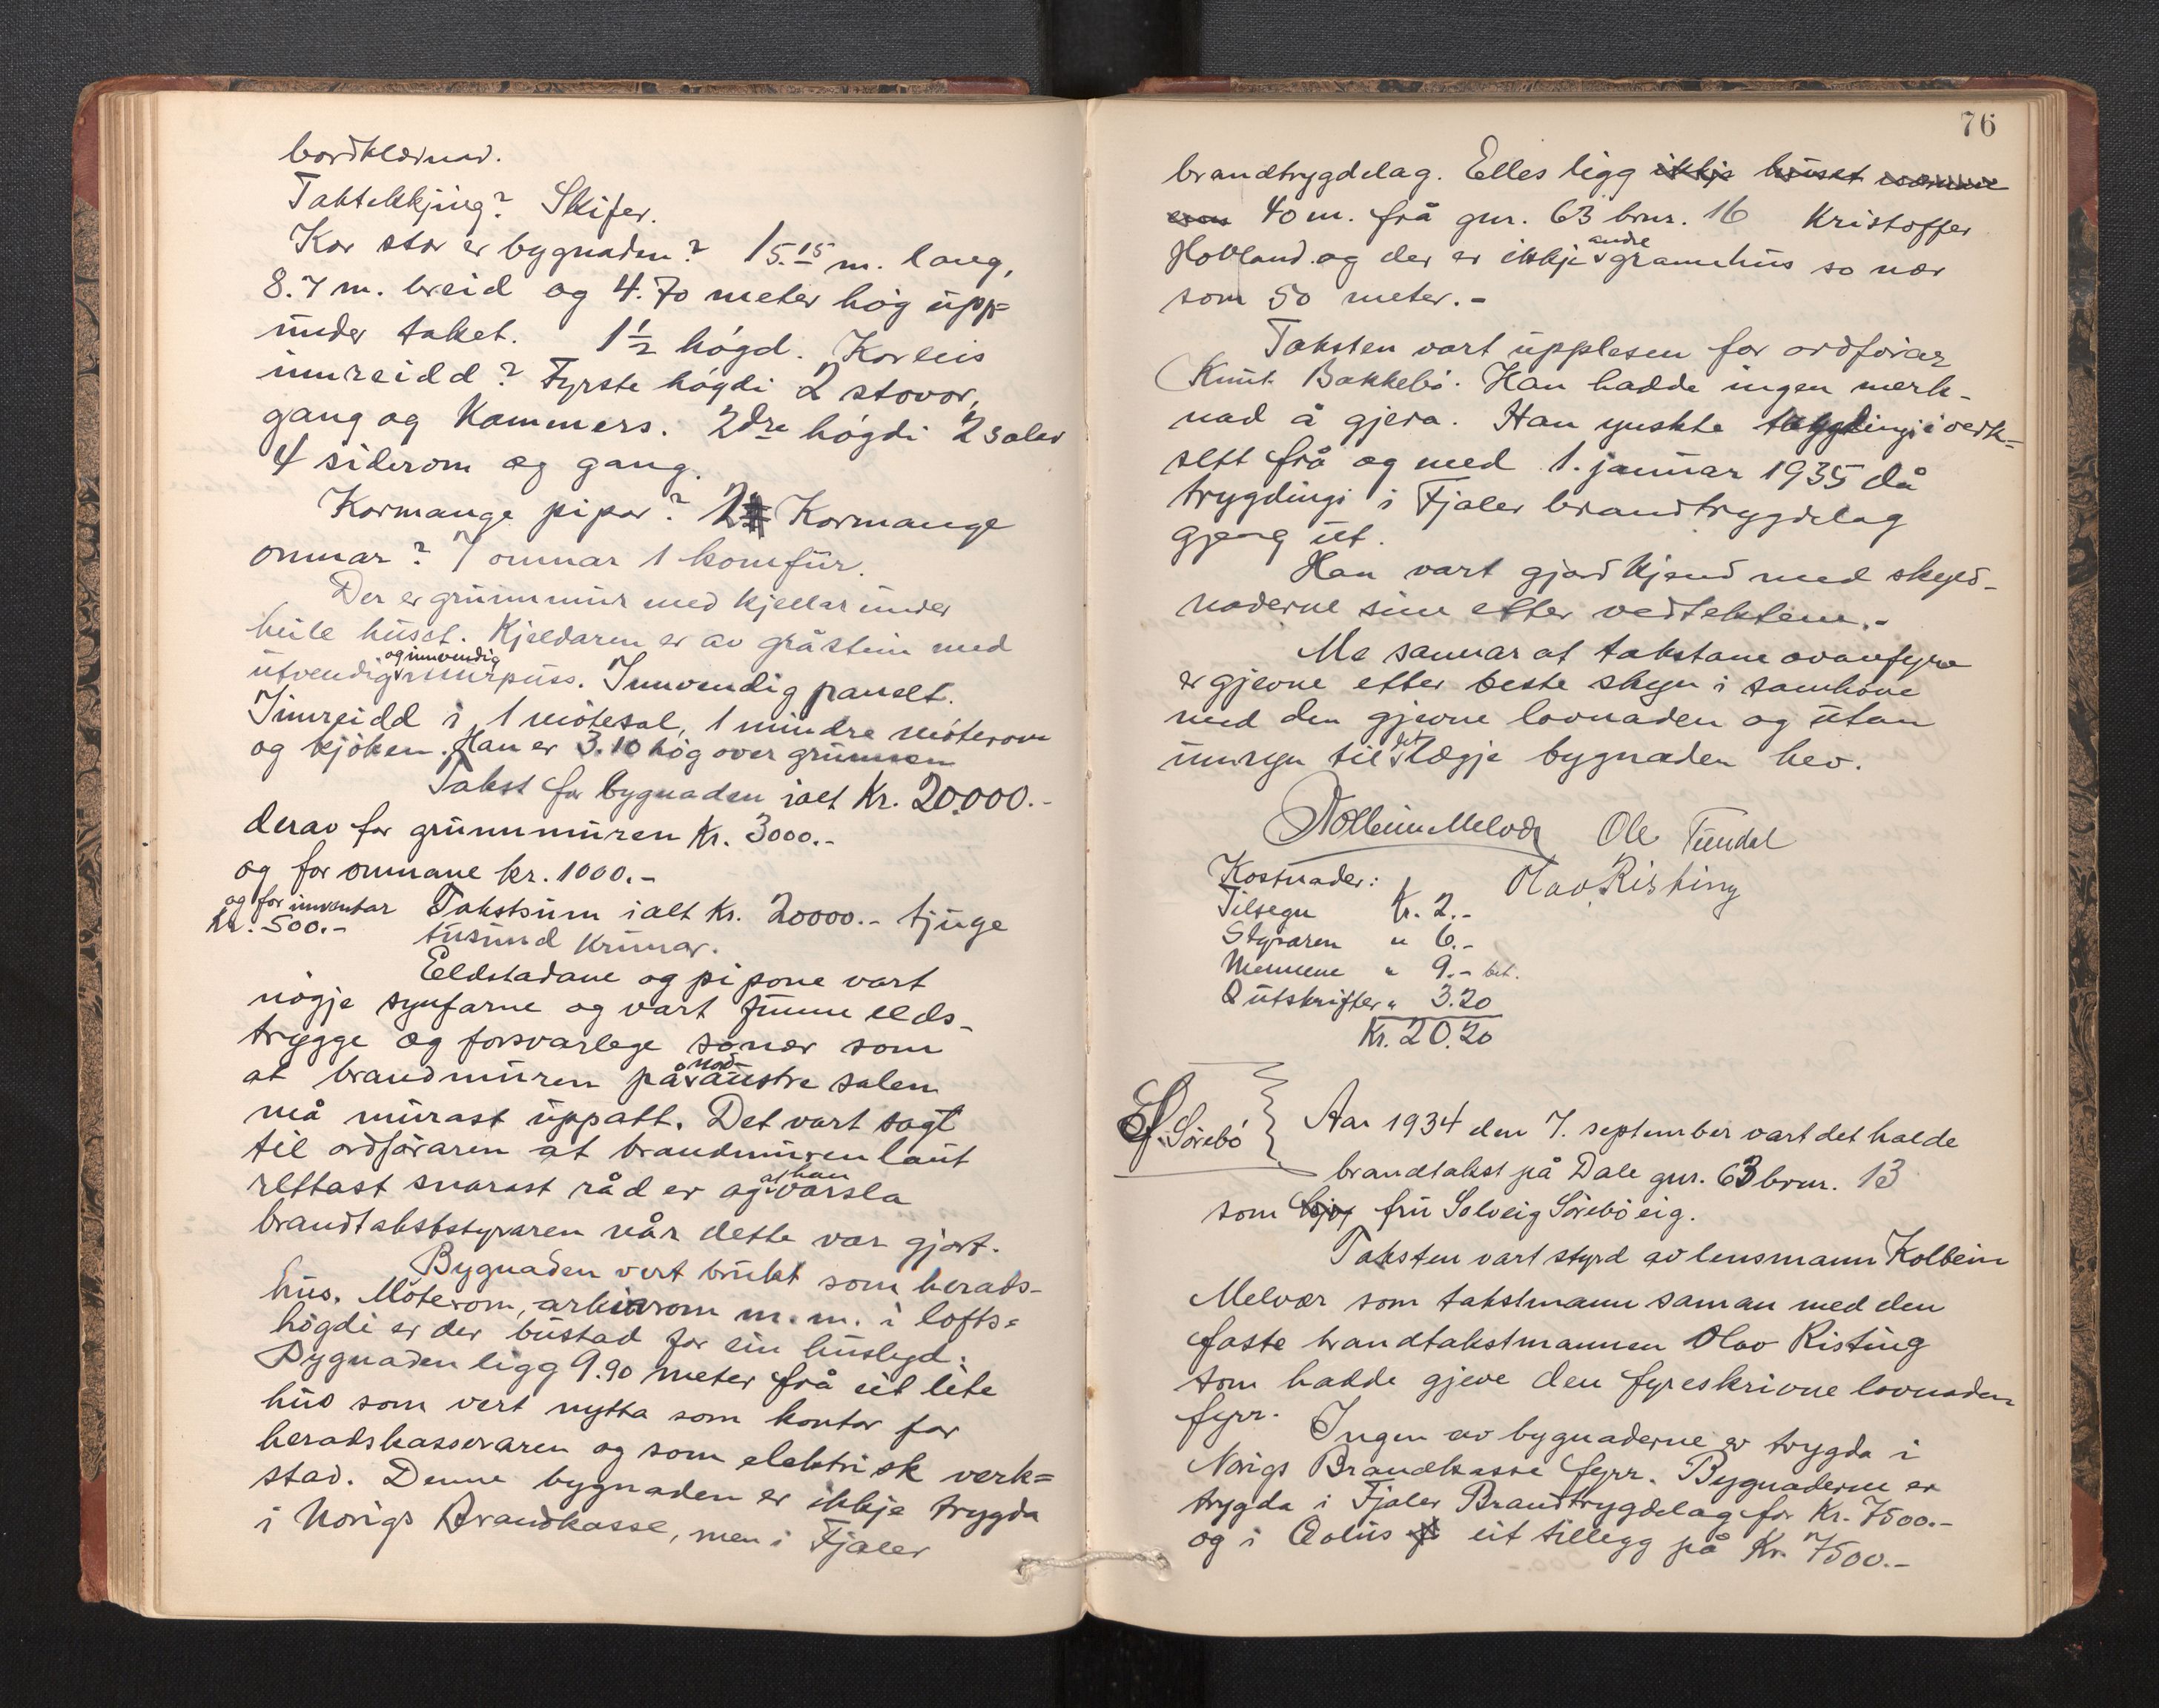 bordklædnad.
Taktekkjing? Skifer.
Kor stor er bygnaden? 15.15 m. lang,
8.7 m. breid og 4.70 meter høg upp-
under taket. 1½ høgd. Korleis
innreidd? Fyrste høgdi 2 stovor,
gang og Kammers. 2dre høgdi 2 salar
4 siderom og gang.
Kormange pipor? 2 Kormange
omnar? 7 omnar 1 komfür.
Der er grunnmur med kjellar under
heile huset. Kjeldaren er av gråstein med
utvendig og innvendig murpuss. Innvendig panelt.
Innreidd i 1 møtesal, 1 mindre møterom
og kjøken. Han er 3.10 høg over grunnen
Takst for bygnaden ialt Kr. 20.000.-
derav for grunnmuren Kr. 3000.-
og for omnane kr. 1000.-
og for inventar kr. 500.-
Takstsum ialt Kr. 20000.- tjuge
tusund krunor.
Eeldstadane og pipone vart
nøgje synfarne og vart funne elds-
trygge og forsvarlege so nær som
at brandmuren på nord-austre salen
må murast uppatt. Det vart sagt
til ordføraren at brandmuren laut
rettast snarast råd er og at han varsla
brandtakststyraren når dette var gjort.
Bygnaden vert brukt som herads-
hus. Møterom, arkivrom m.m. i lofts-
høgdi er der bustad for ein huslyd.
Bygnaden ligg 9.90 meter frå eit lite
hus som vert nytta som kontor for
heradskasseraren og som elektrisk verk-
stad. Denne bygnaden er ikkje trygda
i Norigs Brandkasse, men i Fjaler
76
brandtrygdelag. Elles ligg ikkje huset
40 m. frå gnr. 63 bnr. 16 Kristoffer
Hovland og der er ikkje andre grannehus so nær
som 50 meter.-
Taksten vart upplesen for ordførar
Knut Bakkebø. Han hadde ingen merk-
nad å gjera. Han ynskte trygdingi i verk-
sett frå og med 1. januar 1935 då
trygdingi i Fjaler brandtrygdelag
gjeng ut.
Han vart gjord kjend med skyld-
naderne sine etter vedtektene.-
Me sannar at takstane ovanfyre
er gjevne etter beste skyn i samhøve
med den gjevne lovnaden og utan
umsyn til det lægje bygnaden hev.
Kolbein Melvær Ole Tundal
Olav Risting
Kostnader:
Tilsegn Kr. 2.-
Styraren " 6.-
Mennene " 9.- bet.
2 utskrifter " 3.20
Kr. 20.20
Sørebø
Aar 1934 den 7. september vart det halde
brandtakst på Dale gnr. 63 bnr. 13
som fru Solveig Sørebø eig.
Taksten vart styrd av lensmann Kolbein
Melvær som takstmann saman med den
faste brandtakstmannen Olav Risting
som hadde gjeve den fyreskrivne lovnaden
fyrr.
Ingen av bygnaderne er trygda i
Norigs Brandkasse fyrr. Bygnaderne er
trygda i Fjaler Brandtrygdelag for Kr. 7500.-
og i Æolus eit tillegg på Kr. 7500.-